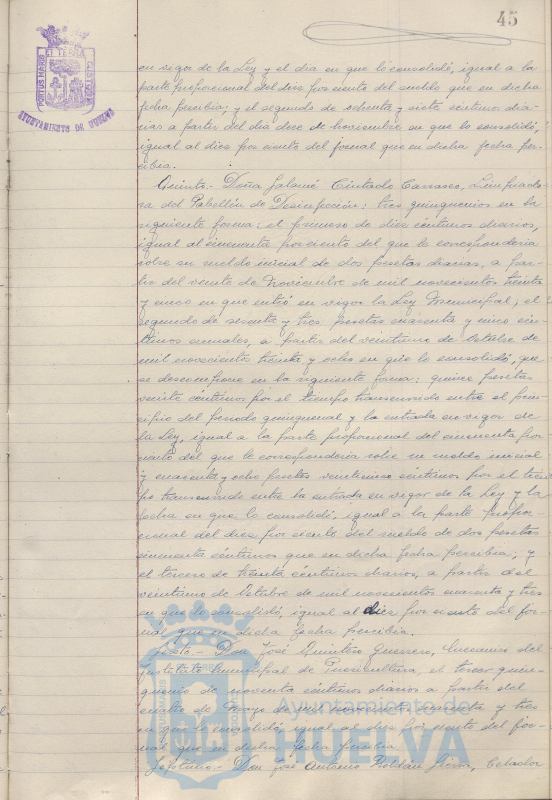 45
PORTUS MARIS ET TERRAE CUSTODIA
AYUNTAMIENTO DE HUELVA
en vigor de la Ley y el dia en que lo consolidó, igual a la
parte proporcional del diez por ciento del sueldo que en dicha
fecha percibia; y el segundo de ochenta y siete céntimos dia-
rios a partir del dia doce de noviembre en que lo consolidó,
igual al diez por ciento del jornal que en dicha fecha per-
cibia.
Quinto.- Doña Salomé Cintado Carrasco, Limpiado-
ra del Pabellón de Desinfección: tres quinquenios en la
siguiente forma: el primero de diez céntimos diarios,
igual al cincuenta por ciento del que le correspondería
sobre su sueldo inicial de dos pesetas diarias, a par-
tir del veinte de Noviembre de mil novecientos treinta
y cinco en que entró en vigor la Ley Municipal; el
segundo de sesenta y tres pesetas cuarenta y cinco cén-
timos anuales, a partir del veintiuno de Octubre de
mil novecientos treinta y ocho en que lo consolidó, que
se descompone en la siguiente forma: quince pesetas
veinte céntimos por el tiempo transcurrido entre el prin-
cipio del periodo quinquenal y la entrada en vigor de
la Ley, igual a la parte proporcional del cincuenta por
ciento del que le correspondería sobre su sueldo inicial
y cuarenta y ocho pesetas veinticinco céntimos por el tiem-
po transcurrido entre la entrada en vigor de la Ley y la
fecha en que lo consolidó, igual a la parte propor-
cional del diez por ciento del sueldo de dos pesetas
cincuenta céntimos que en dicha fecha percibia; y
el tercero de treinta céntimos diarios, a partir del
veintiuno de Octubre de mil novecientos cuarenta y tres
en que lo consolidó, igual al diez por ciento del jor-
nal que en dicha fecha percibia.
Sexto.- Don José Quintero Guerrero, del
Instituto Municipal de Puericultura, el tercer quin-
quenio de noventa céntimos diarios a partir del
cuatro de Mayo de mil novecientos cuarenta y tres
en que consolidó, igual al diez por ciento del jor-
nal que en dicha fecha percibia.
Septimo.- Don José Antonio Roldán, Celador
Ayuntamiento de
HUELVA